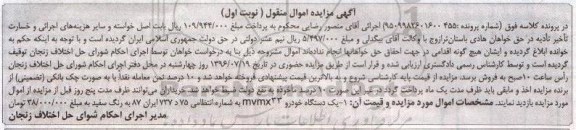 آگهی مزایده اموال منقول ( نوبت اول)
در پرونده کلاسه فوق (شماره پرونده :455 1600-9998260-95) اجرائی آقای منصور رضایی محکوم به پرداخت مبلغ 109/943/000 ریال بابت اصل خواسته و سایر هزینه‌های اجرائی و خسارت
تأخیر تأدیه در حق خواهان هادی باستان ترازوج با وکالت آقای بیگدلی و مبلغ 5/497/000 ریال نیم عشر دولتی در حق دولت جمهوری اسلامی ایران گردیده است و با توجه به اینکه حکم به
خوانده ابلاغ گردیده و ایشان هیچ گونه اقدامی در جهت احقاق حق خواهانها انجام نداده‌اند اموال مشروحه ذیل بنا به درخواست خواهان توسط اجرای احکام شورای حل اختلاف زنجان توقیف
گردیده است و توسط کارشناس رسمی دادگستری ارزیابی شده و قرار است از طریق مزایده حضوری در تاریخ 1396/07/19 روز چهارشنبه در محل دفتر اجرای احکام شورای حل اختلاف زنجان
رأس ساعت 10 صبح به فروش برسد. مزایده از قیمت پایه کارشناسی شروع و به بالاترین قیمت پیشنهادی فروخته خواهد شد و 10 درصد ثمن معامله نقداً یا به صورت چک بانکی (تضمینی) از
برنده مزایده اخذ و مابقی باید ظرف مدت یک ماه پرداخت گردد در غیر این صورت 10 درصد مأخوذه به نفع دولت ضبط خواهد شد. خریداران می‌توانند ظرف مدت پنج روز قبل از مزایده از اموال
مورد مزایده بازدید نمایند. مشخصات اموال مورد مزایده و قیمت آن: 1-یک دستگاه خودرو mvmx33 به شماره انتظامی 75 د 737 ایران 87 به رنگ سفید به مبلغ 38/000/000 تومان
مدیر اجرای احکام شورای حل اختلاف زنجان